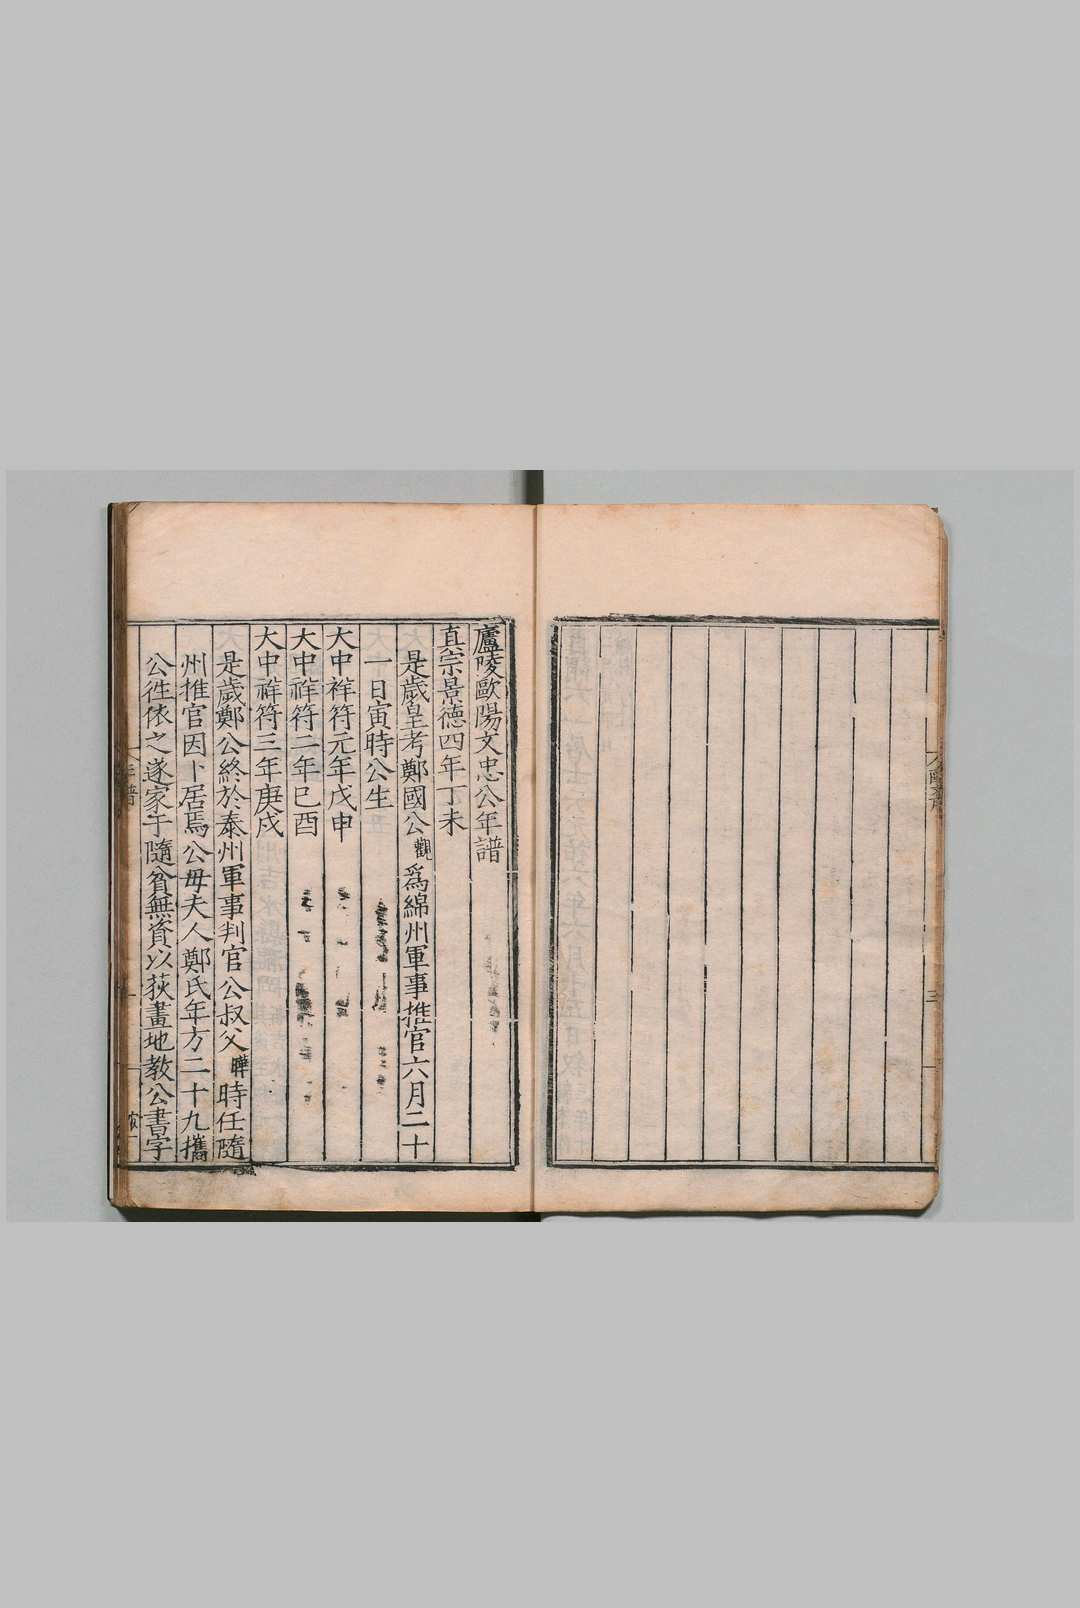 廬陵歐陽文忠公年譜
真宗景德四年丁未
是歲皇考鄭國公觀爲綿州軍事推官六月二十
一日寅時公生
大中祥符元年戊申
大中祥符二年己酉
大中祥符三年庚戌
是歲鄭公終於泰州軍事判官公叔父曄時任隨
州推官因卜居焉公毋夫人鄭氏年方二十九攜
公徃依之遂家于隨貧無資以荻畫地教公書字